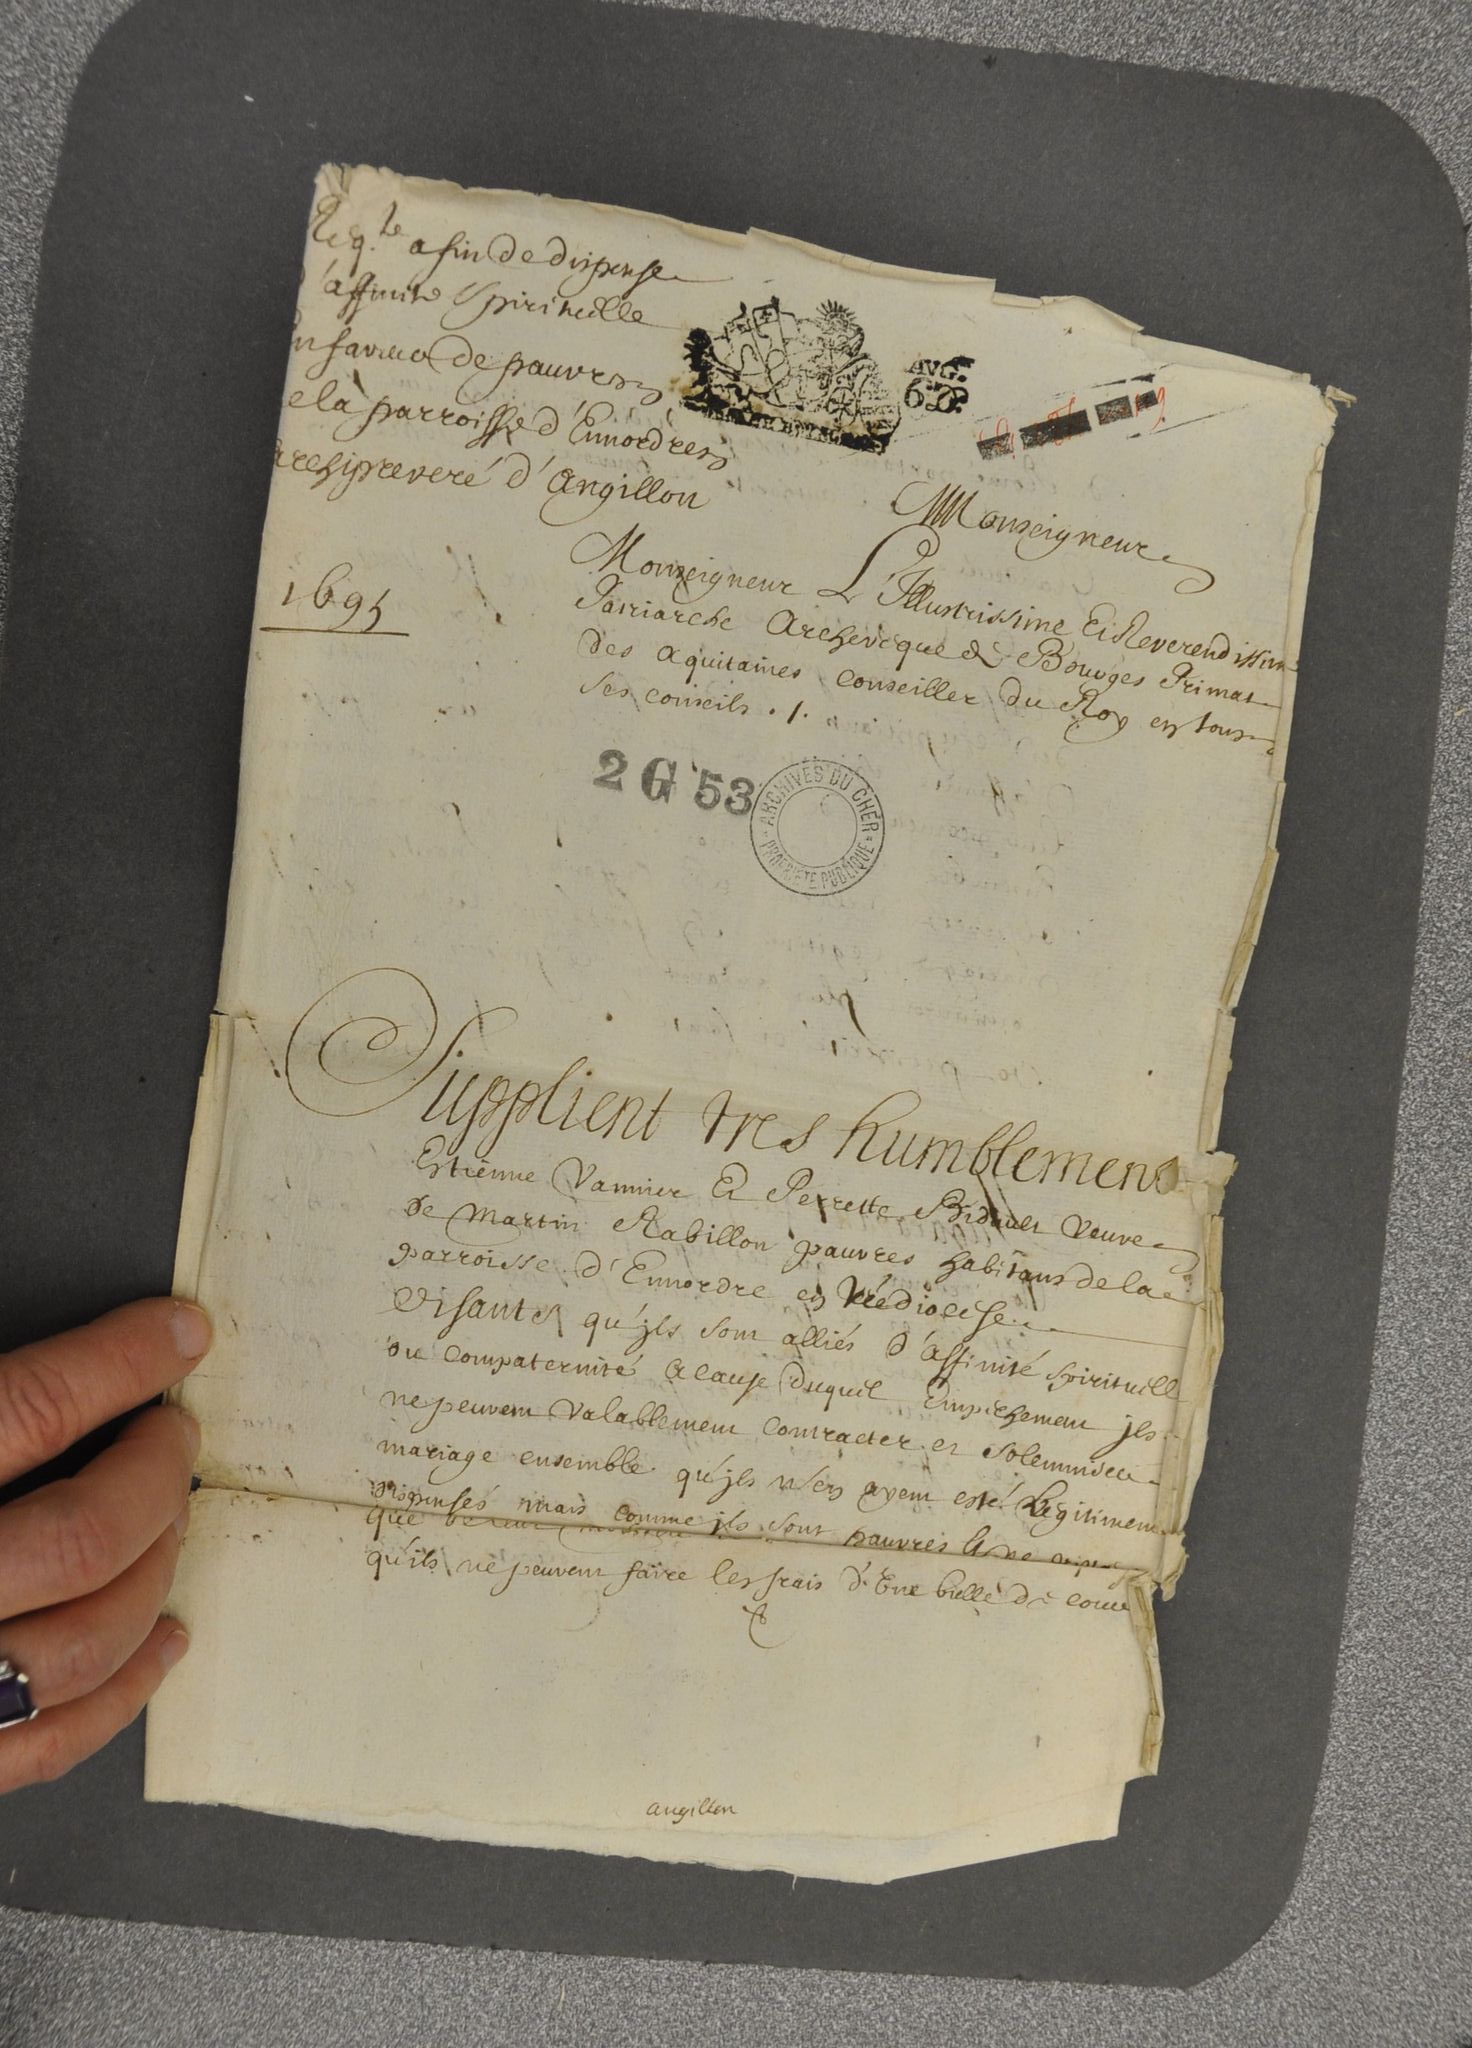 Req.te afin de dispense
d'affinité spirituelle
En faveur de pauvres
de la parroisse d'Ennordres
archipreveré d'Angillon
1695
AVG.
6D
Monseigneur
Monseigneur L'Illustrissime Et Reverendissime
Patriarche Archevesque de Bourges Primat
des aquitaines conseiller du Roy en tous
ses conseils ./.
2 G 53
ARCHIVES DU CHER
PROPRIETE PUBLIQUE
Supplient tres humblement
Estienne Vannier Et Perrette Bidault veuve
de Martin Rabillon pauvres habitans de la
parroisse d'Ennordre en diocese
Disants qu'jls sont alliés d'affinité spirituelle
ou compaternité a cause duquel Empechement jls
ne peuvent valablement contracter et solemniser
mariage ensemble qu'jls n'en ayent esté Legitimem
dispensés mais comme jls sont pauvres
que
qu'ils ne peuvent faire les frais d'Une bulle de cour
angillon